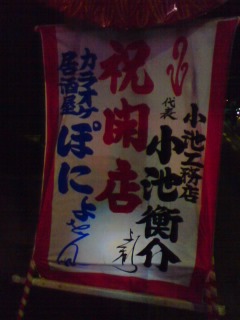 小池工務店
代表 小池衡介
祝開店
カラオケ
居酒屋
ぽにょさん